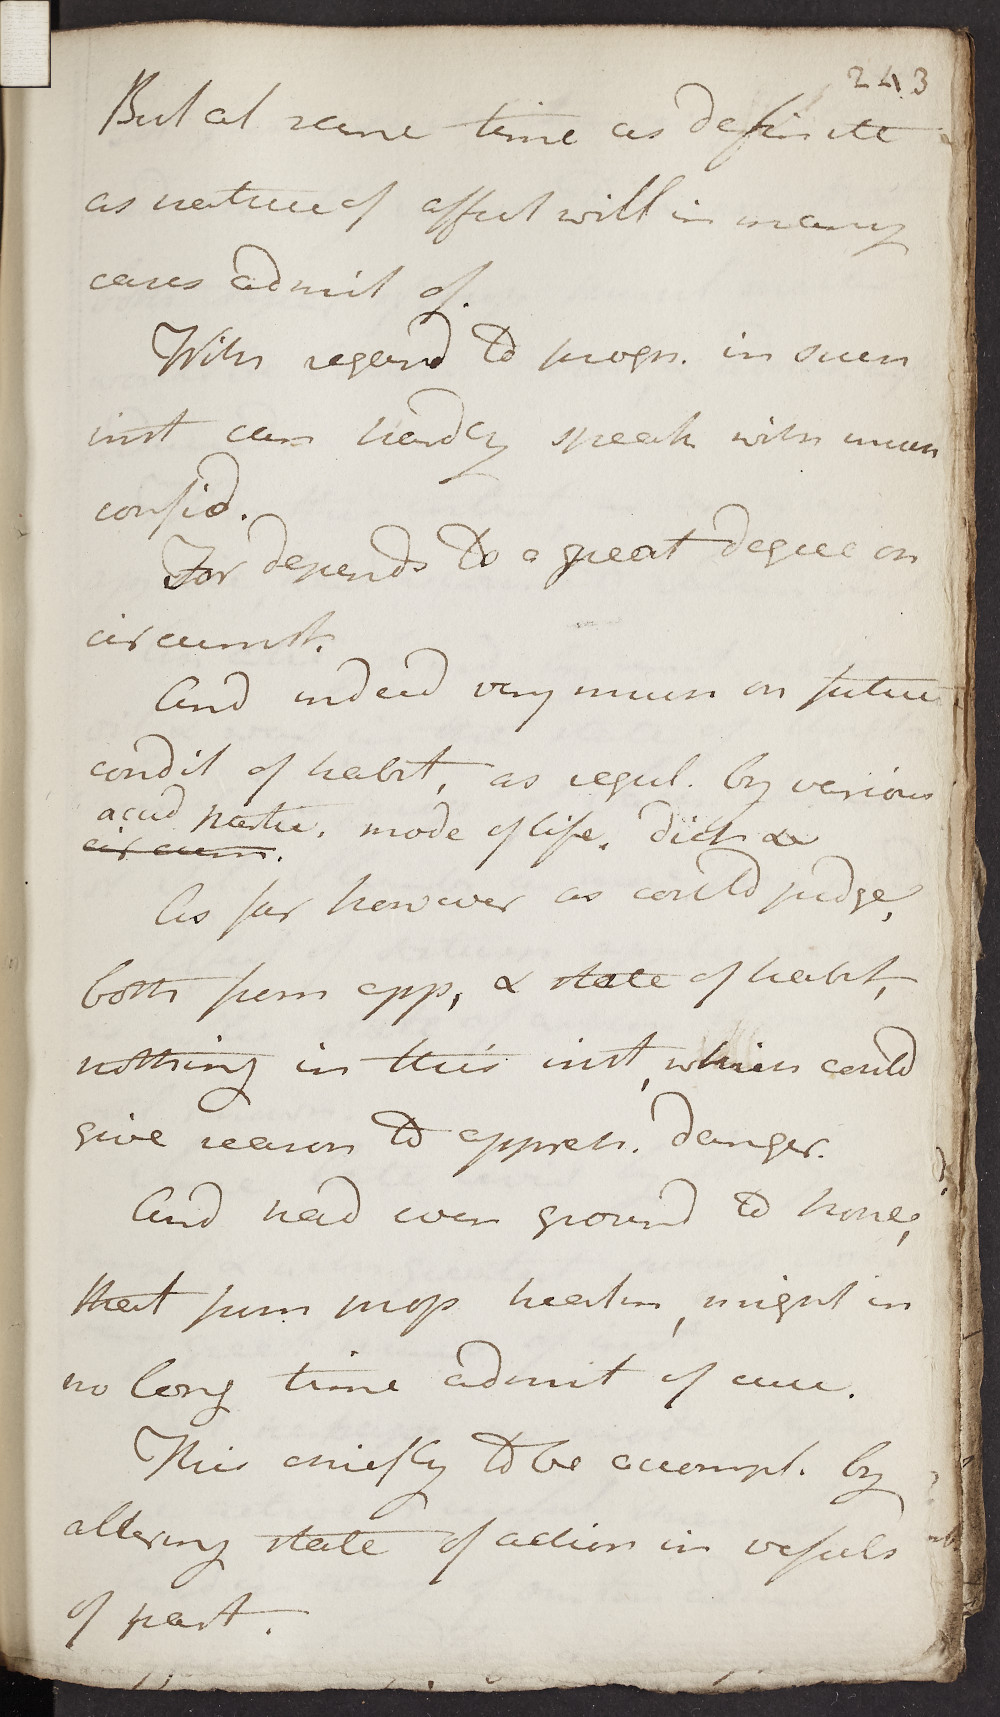 243
But at same time as definite
as nature of affect will in many
cases admit of.
With regard to progn. in such
inst can hardly speak with much
confid.
For depends to a great degree on
circumst.
And indeed very much on future
condit of habit, as regul. by various
acid mode of life, diet &c
circum.
As far however as could judge,
both from app, & state of habit,
nothing in this inst, which could
give reason to appreh. danger.
And had even ground to hope,
that from prop health, might in
no long time admit of cure.
This chiefly to be accompl. by
altering state of action in vessels
of part.